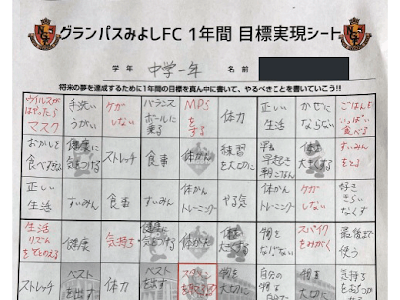 グランパスみよしFC 1年間 目標実現シート
学年 中学一年 名前
将来の夢を達成するために1年間の目標を真ん中に書いて、やるべきことを書いていこう!!
ウイルスが はやったら マスク
手洗い うがい
ケガ しない
バランス ボールに 乗る
MPS をする
体力
正しい 生活
かぜに ならない
ごはんを いっぱい 食べる
おかしを 食べすぎない
健康に 気をつける
ストレッチ
食事
体かん
練習 を大切に
早ね 早起き 朝ごはん
体を 大きくする
すいみん をとる
正しい 生活
すいみん
食事
体かん トレーニング
体かん トレーニング
やる気
体かん トレーニング
ケガ しない
好き きらい なくす
生活 リズム をととのえる
健康
気持ち
健康に 気をつける
体かん
体を 大きくする
物を なげない
スパイク をみがく
最後まで 使う
ストレッチ
ベスト を出す
体力
ベスト を出す
物を 大切に
自分の
物を 大切に
気持ちを